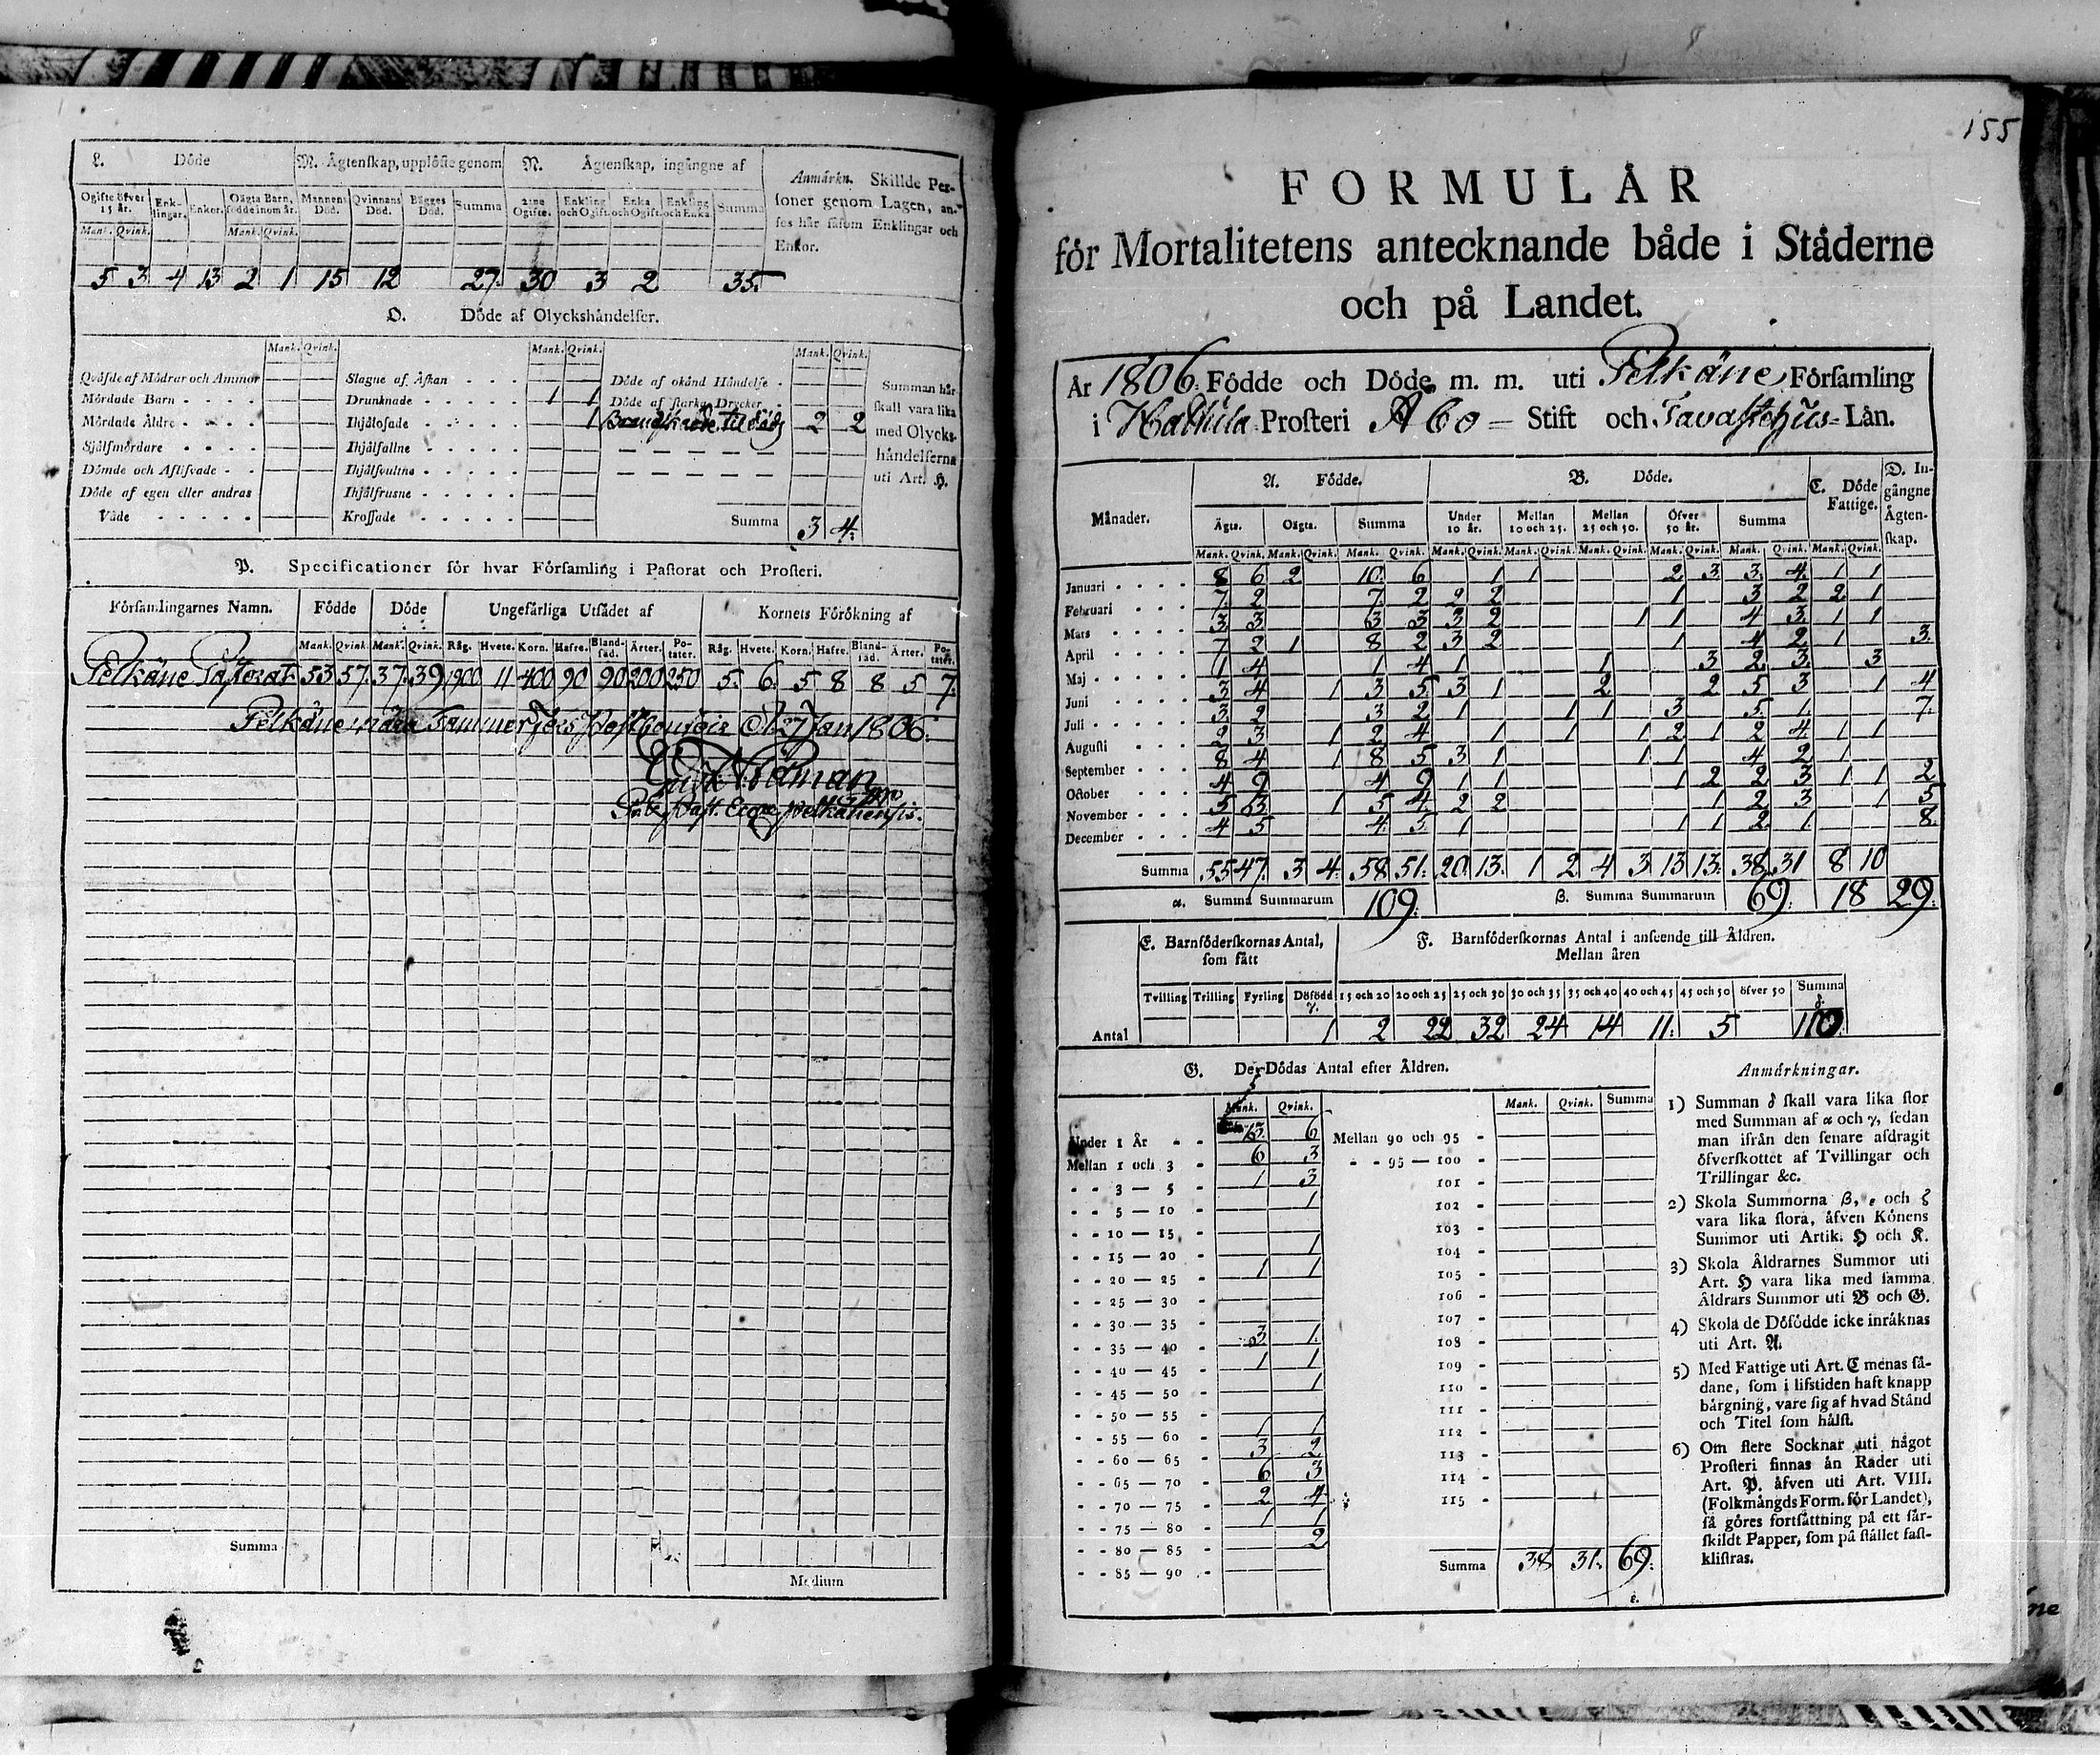 L. Döde
M. Ägtenskap, upplöste genom
N. Ägtenskap, ingångne af
Anmärkn. Skillde Personer genom Lagen, anses här såsom Enklingar och Enkor.
Ogifte öfver 15 år. Enklingar. Enkor. Oägta Barn, födde inom år. Mannens Död. Qvinnans Död. Bägges Död. Summa 2:ne Ogifte. Enkling och Ogift. Enka och Ogift. Enkling och Enka. Summa
Mank. Qvink. Mank. Qvink.
5 3 4 13 2 1 15 12 27. 30 3 2 35.
O. Döde af Olyckshändelser.
Mank. Qvink. Mank. Qvink. Mank. Qvink.
Qväfde af Mödrar och Ammor Slagne af Åskan . . . Döde af okänd Händelse .
Mördade Barn . . . . Drunknade . . . . . 1 1 Döde af starka Drycker .
Mördade Äldre . . . . Ihjälosade . . . . . 1 2 2
Självmördare . . . . Ihjälfallne . . . . .
Dömde och Aflifvade - - Ihjälsvultne . . . .
Döde af egen eller andras Ihjälfrusne . . . . .
Våde . . . . . Krossade . . . . . Summa 3 4.
Summan här skall vara lika med Olyckshändelserna uti Art. H.
P. Specificationer för hvar Församling i Pastorat och Prosteri.
Församlingarnes Namn. Födde Döde Ungefärliga Utsädet af Kornets Förökning af
Mank. Qvink. Mank. Qvink. Råg. Hvete. Korn. Hafre. Blandsäd. Ärter. Potater. Råg. Hvete. Korn. Hafre. Blandsäd. Ärter. Potater.
Pelkäne Pastorat. 53 57. 37. 39. 1900 11 400 90 90 200 250 5. 6. 5 8 8 5 7.
Pelkäne nära Tammerfors Post Contoir d. 27 Jan 1806.
Summa
Medium
155
FORMULÄR
för Mortalitetens antecknande både i Städerne
och på Landet.
År 1806. Födde och Döde m. m. uti Pelkäne Församling
i Hattula Prosteri Åbo = Stift och Tavastehus= Län.
Månader. A. Födde. B. Döde. C. Döde Fattige. D. Ingångne Ägtenskap.
Ägta. Oägta. Summa Under 10 år. Mellan 10 och 25. Mellan 25 och 50. Öfver 50 år. Summa
Mank. Qvink. Mank. Qvink. Mank. Qvink. Mank. Qvink. Mank. Qvink. Mank. Qvink. Mank. Qvink. Mank. Qvink. Mank. Qvink.
Januari . . . . 8 6 2 10. 6 1 1 2 3 3. 4. 1 1
Februari . . . 7. 2 7. 2 2 2 1 3 2 2 1
Mars . . . . 3 3 3 3 3 2 1 1 4 3 1 1
April . . . . 7 2 1 8 2 3 2 1 4 2 1 3.
Maj . . . . 1 4 1 4 1 1 3 2 3. 3
Juni . . . . 3 4 1 3 5 3 1 2 2 5 3 1 4
Juli . . . . 3. 2 3 2 1 1 1 3 5. 1. 7.
Augusti . . . 2 3 1 2 4 1 1 1 2 1 2 4 1 1
September . . . 8 4 1 8 5 3 1 1 1 4 2 1
October . . . 4 9 4 9 1 1 1 2 2 3 1 1 2
November . . . 5 3 1 5 4 2 2 1 2 3 1 5
December . . . 4 5 4. 5. 1 1 1 2. 1. 8.
Summa 55 47. 3 4. 58 51. 20. 13. 1 2 4 3 13 13. 38. 31 8 10
α. Summa Summarum 109. β. Summa Summarum 69. 18 29.
E. Barnföderskornas Antal, som fått
F. Barnföderskornas Antal i anseende till Åldren.
Mellan åren
Tvilling Trilling Fyrling Döfödd γ. 15 och 20 20 och 25 25 och 30 30 och 35 35 och 40 40 och 45 45 och 50 öfver 50 Summa δ.
Antal 1 2 22 32 24 14 11. 5 110.
G. De Dödas Antal efter Åldren.
Mank. Qvink. Mank. Qvink. Summa
Under 1 År - - 13. 6 Mellan 90 och 95 -
Mellan 1 och 3 - 6 3 - - 95 — 100 -
- - 3 — 5 - 1 3 101 -
- - 5 — 10 - 1 102 -
- - 10 — 15 - 103 -
- - 15 — 20 - 1 104 -
- - 20 — 25 - 1 1 105 -
- - 25 — 30 - 106 -
- - 30 — 35 - 107 -
- - 35 — 40 - 3 1. 108 -
- - 40 — 45 - 1 1 109 -
- - 45 — 50 - 1 110 -
- - 50 — 55 - 111 -
- - 55 — 60 - 1 1 112 -
- - 60 — 65 - 3 2 113 -
- - 65 — 70 - 6 3 114 -
- - 70 — 75 - 2 4 115 -
- - 75 — 80 - 1 1
- - 80 — 85 - 2
- - 85 — 90 - Summa 38 31. 69.
ε.
Anmärkningar.
1) Summan δ skall vara lika stor
med Summan af α och γ, sedan
man ifrån den senare afdragit
öfverskottet af Tvillingar och
Trillingar &c.
2) Skola Summorna β, ε och ζ
vara lika stora, äfven Könens
Summor uti Artik. H och K.
3) Skola Åldrarnes Summor uti
Art. H vara lika med samma
Åldrars Summor uti B och G.
4) Skola de Döfödde icke inräknas
uti Art. A.
5) Med Fattige uti Art. C menas sådane,
som i lifstiden haft knapp
bärgning, vare sig af hvad Stånd
och Titel som hälst.
6) Om flere Socknar uti något
Prosteri finnas än Rader uti
Art. P. äfven uti Art. VIII.
(Folkmängds Form. för Landet),
så göres fortsättning på ett särskildt
Papper, som på stället fastklistras.